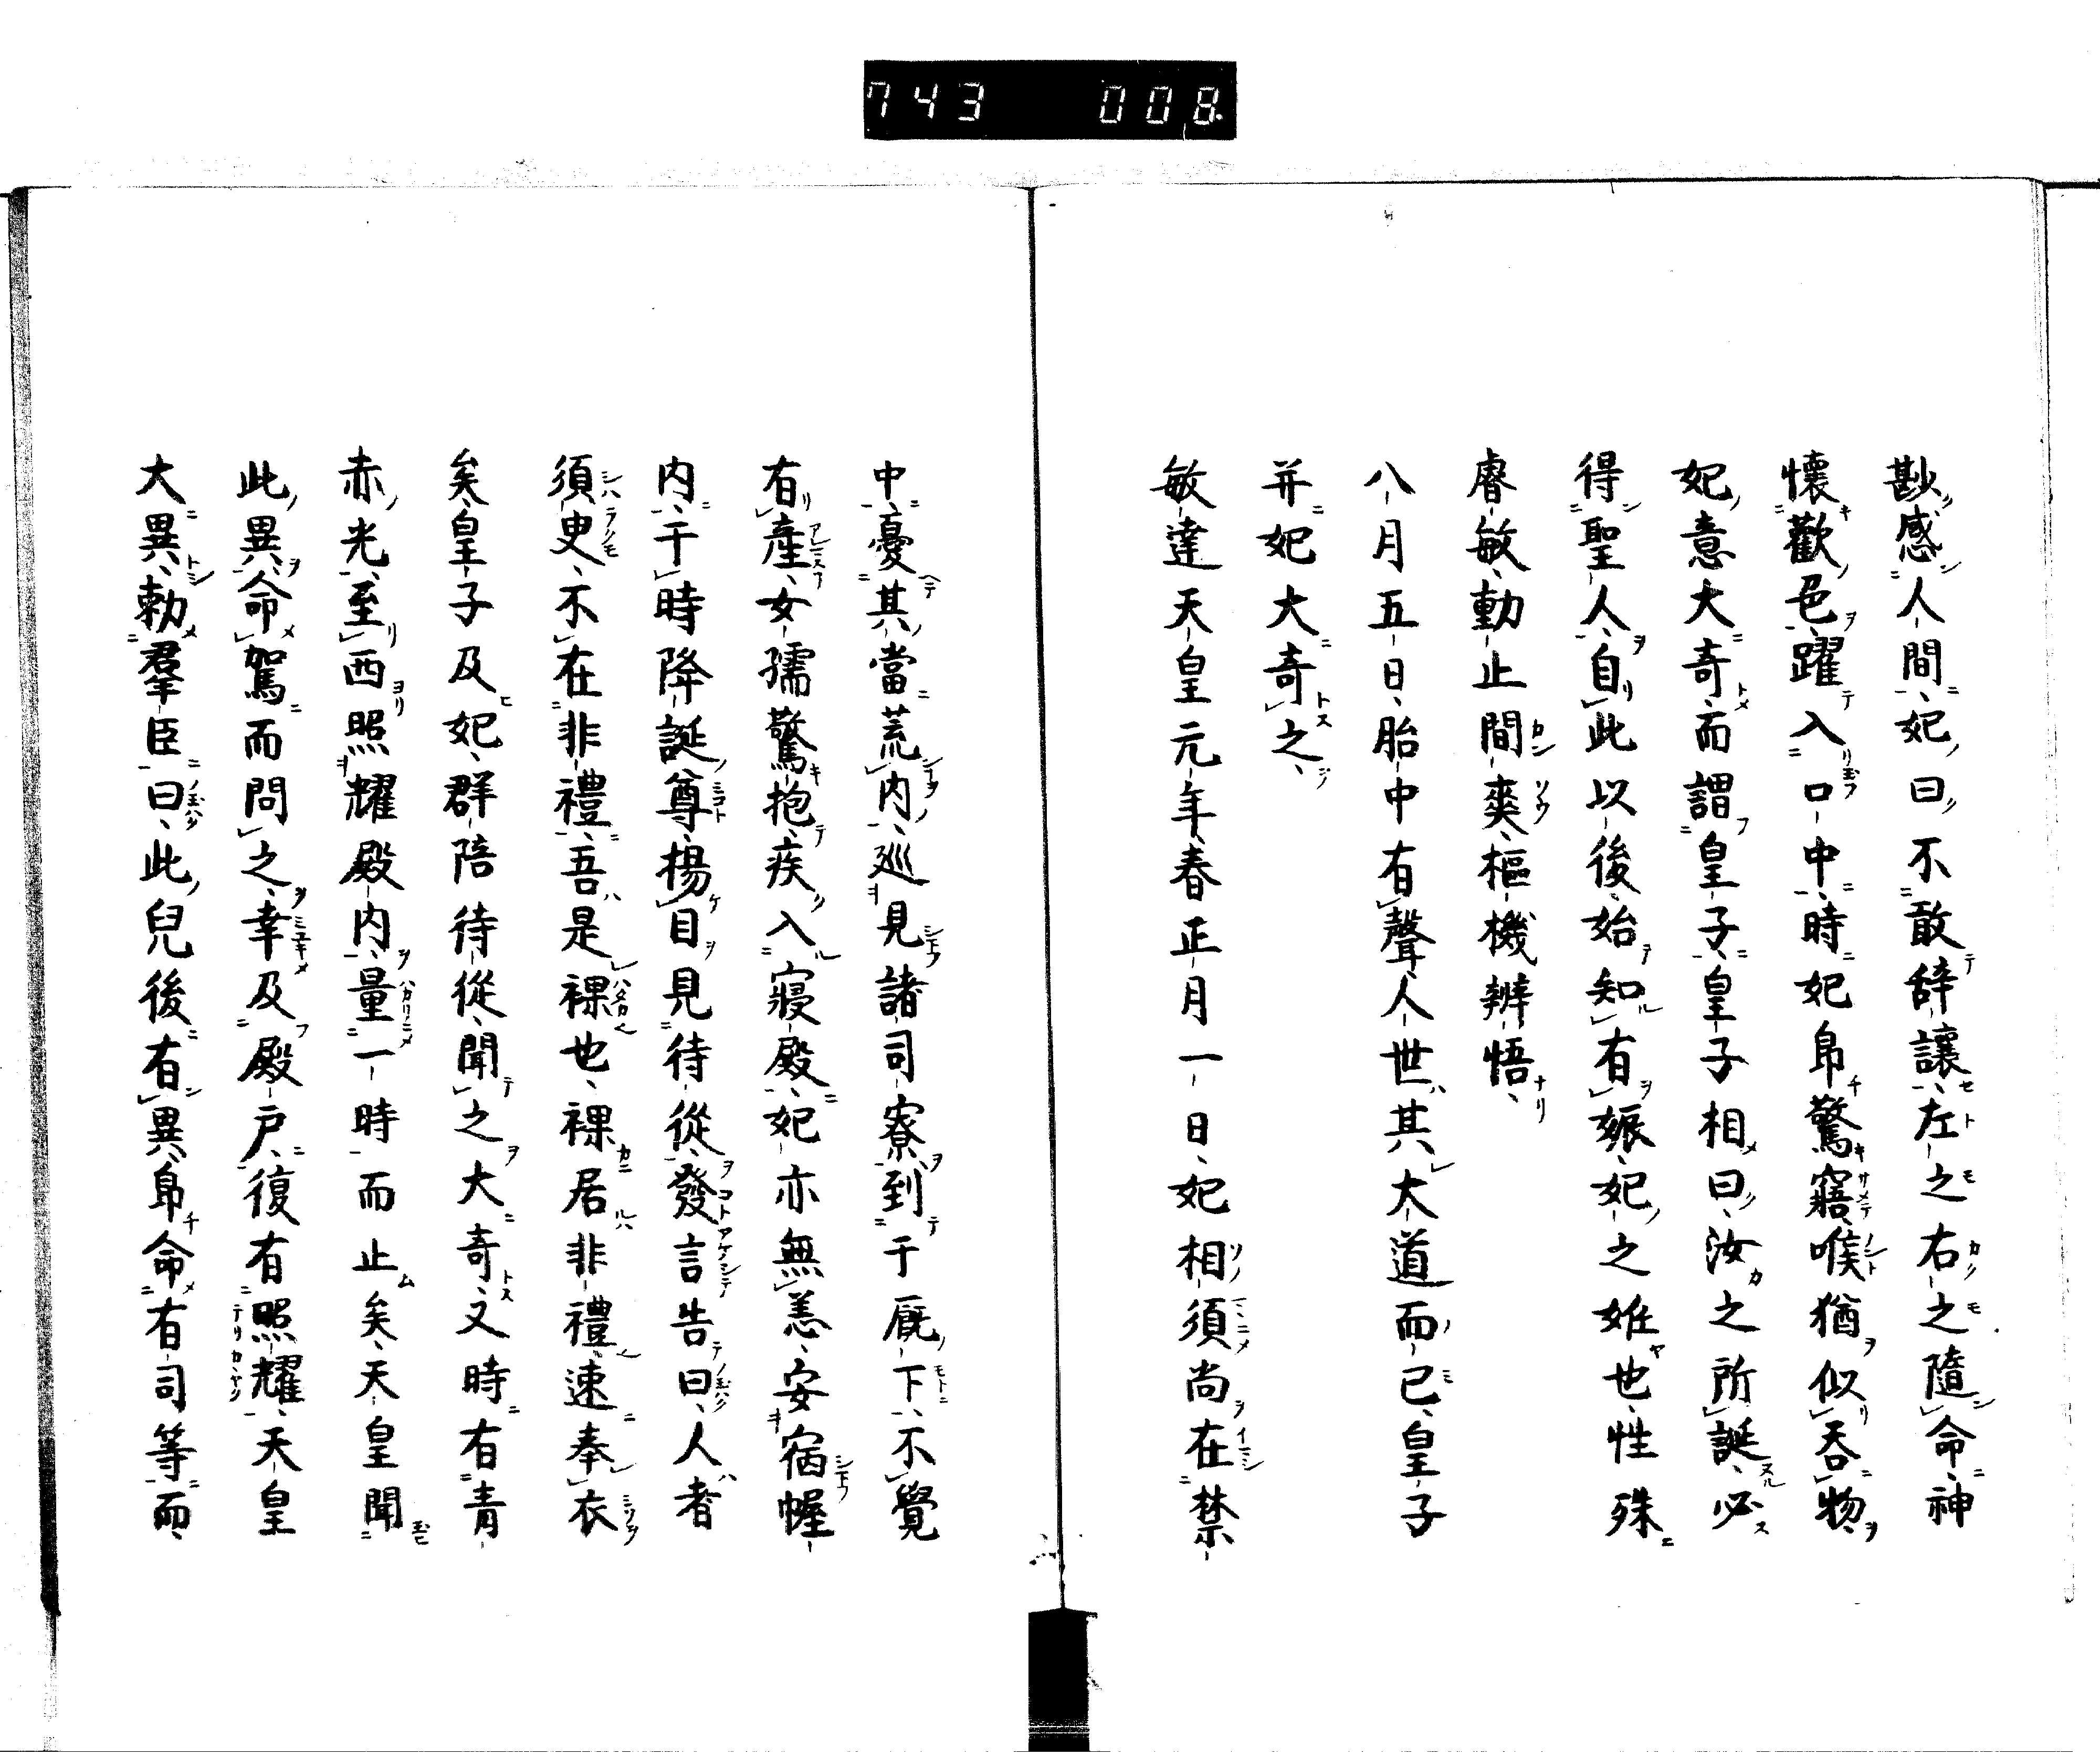 743 008
尠感人間妃曰不敢辞讓左之右之隨命神
懷歡色躍入口中時妃即驚寤喉猶似吞物
妃意大奇而謂皇子皇子相曰汝之所誕必
得聖人自此以後始知有娠妃之姙也性殊
睿敏動止間爽樞機辨悟
八月五日胎中有聲人世其大道而已皇子
并妃大奇之
敏達天皇元年春正月一日妃相須尚在禁
中憂其當荒内巡見諸司寮到于厩下不覺
有產女孺驚抱疾入寢殿妃亦無恙安宿幄
内于時降誕尊揚目見待從發言告曰人者
須臾不在非禮吾是裸也裸居非禮速奉衣
矣皇子及妃群陪待從聞之大奇又時有青
赤光至西照耀殿内量一時而止矣天皇聞
此異命駕而問之幸及殿戸復有照耀天皇
大異勅羣臣曰此兒後有異即命有司等而